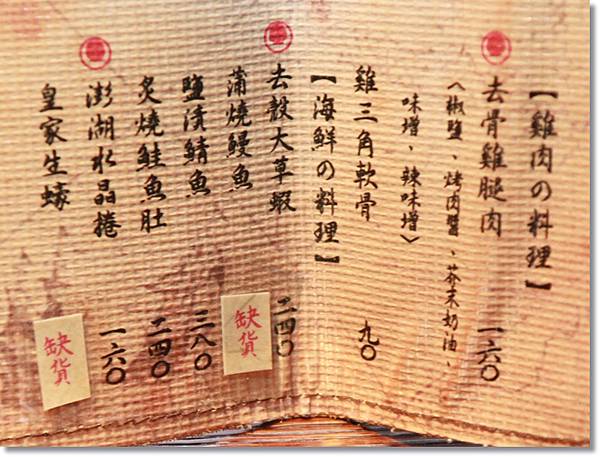 【雞肉の料理】
去骨雞腿肉 一六〇
〈椒鹽、烤肉醬、芥末奶油、
味增、辣味增〉
雞三角軟骨 九〇
【海鮮の料理】
去殼大草蝦 二四〇
蒲燒鰻魚 缺貨
鹽漬鯖魚 三八〇
炙燒鮭魚肚 二四〇
澎湖水晶捲 一六〇
皇家生蠔 缺貨